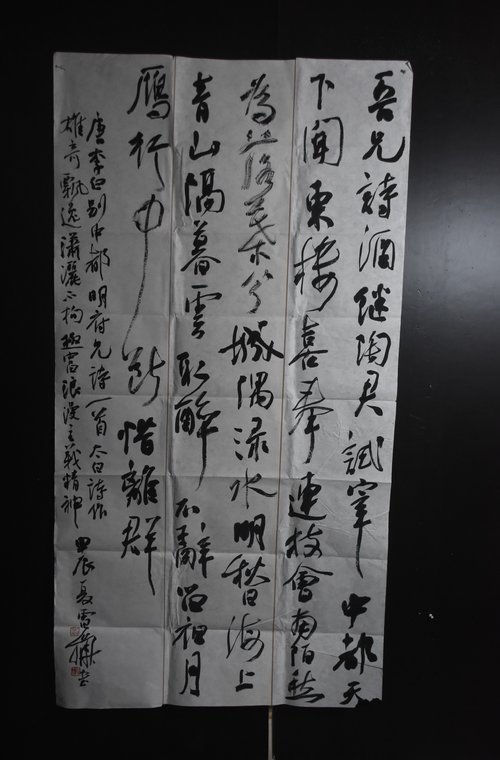 吾兄詩酒继陶君試宰中都天
下闻東楼喜奉連枝會南陌愁
為落葉分城隅渌水明秋日海上
青山隔暮雲取醉不辭留夜月
鴈行中断惜離群
唐李白别中都明府兄诗一首太白诗作
雄奇飘逸瀟灑不拘極富浪漫主義精神 甲辰夏雪